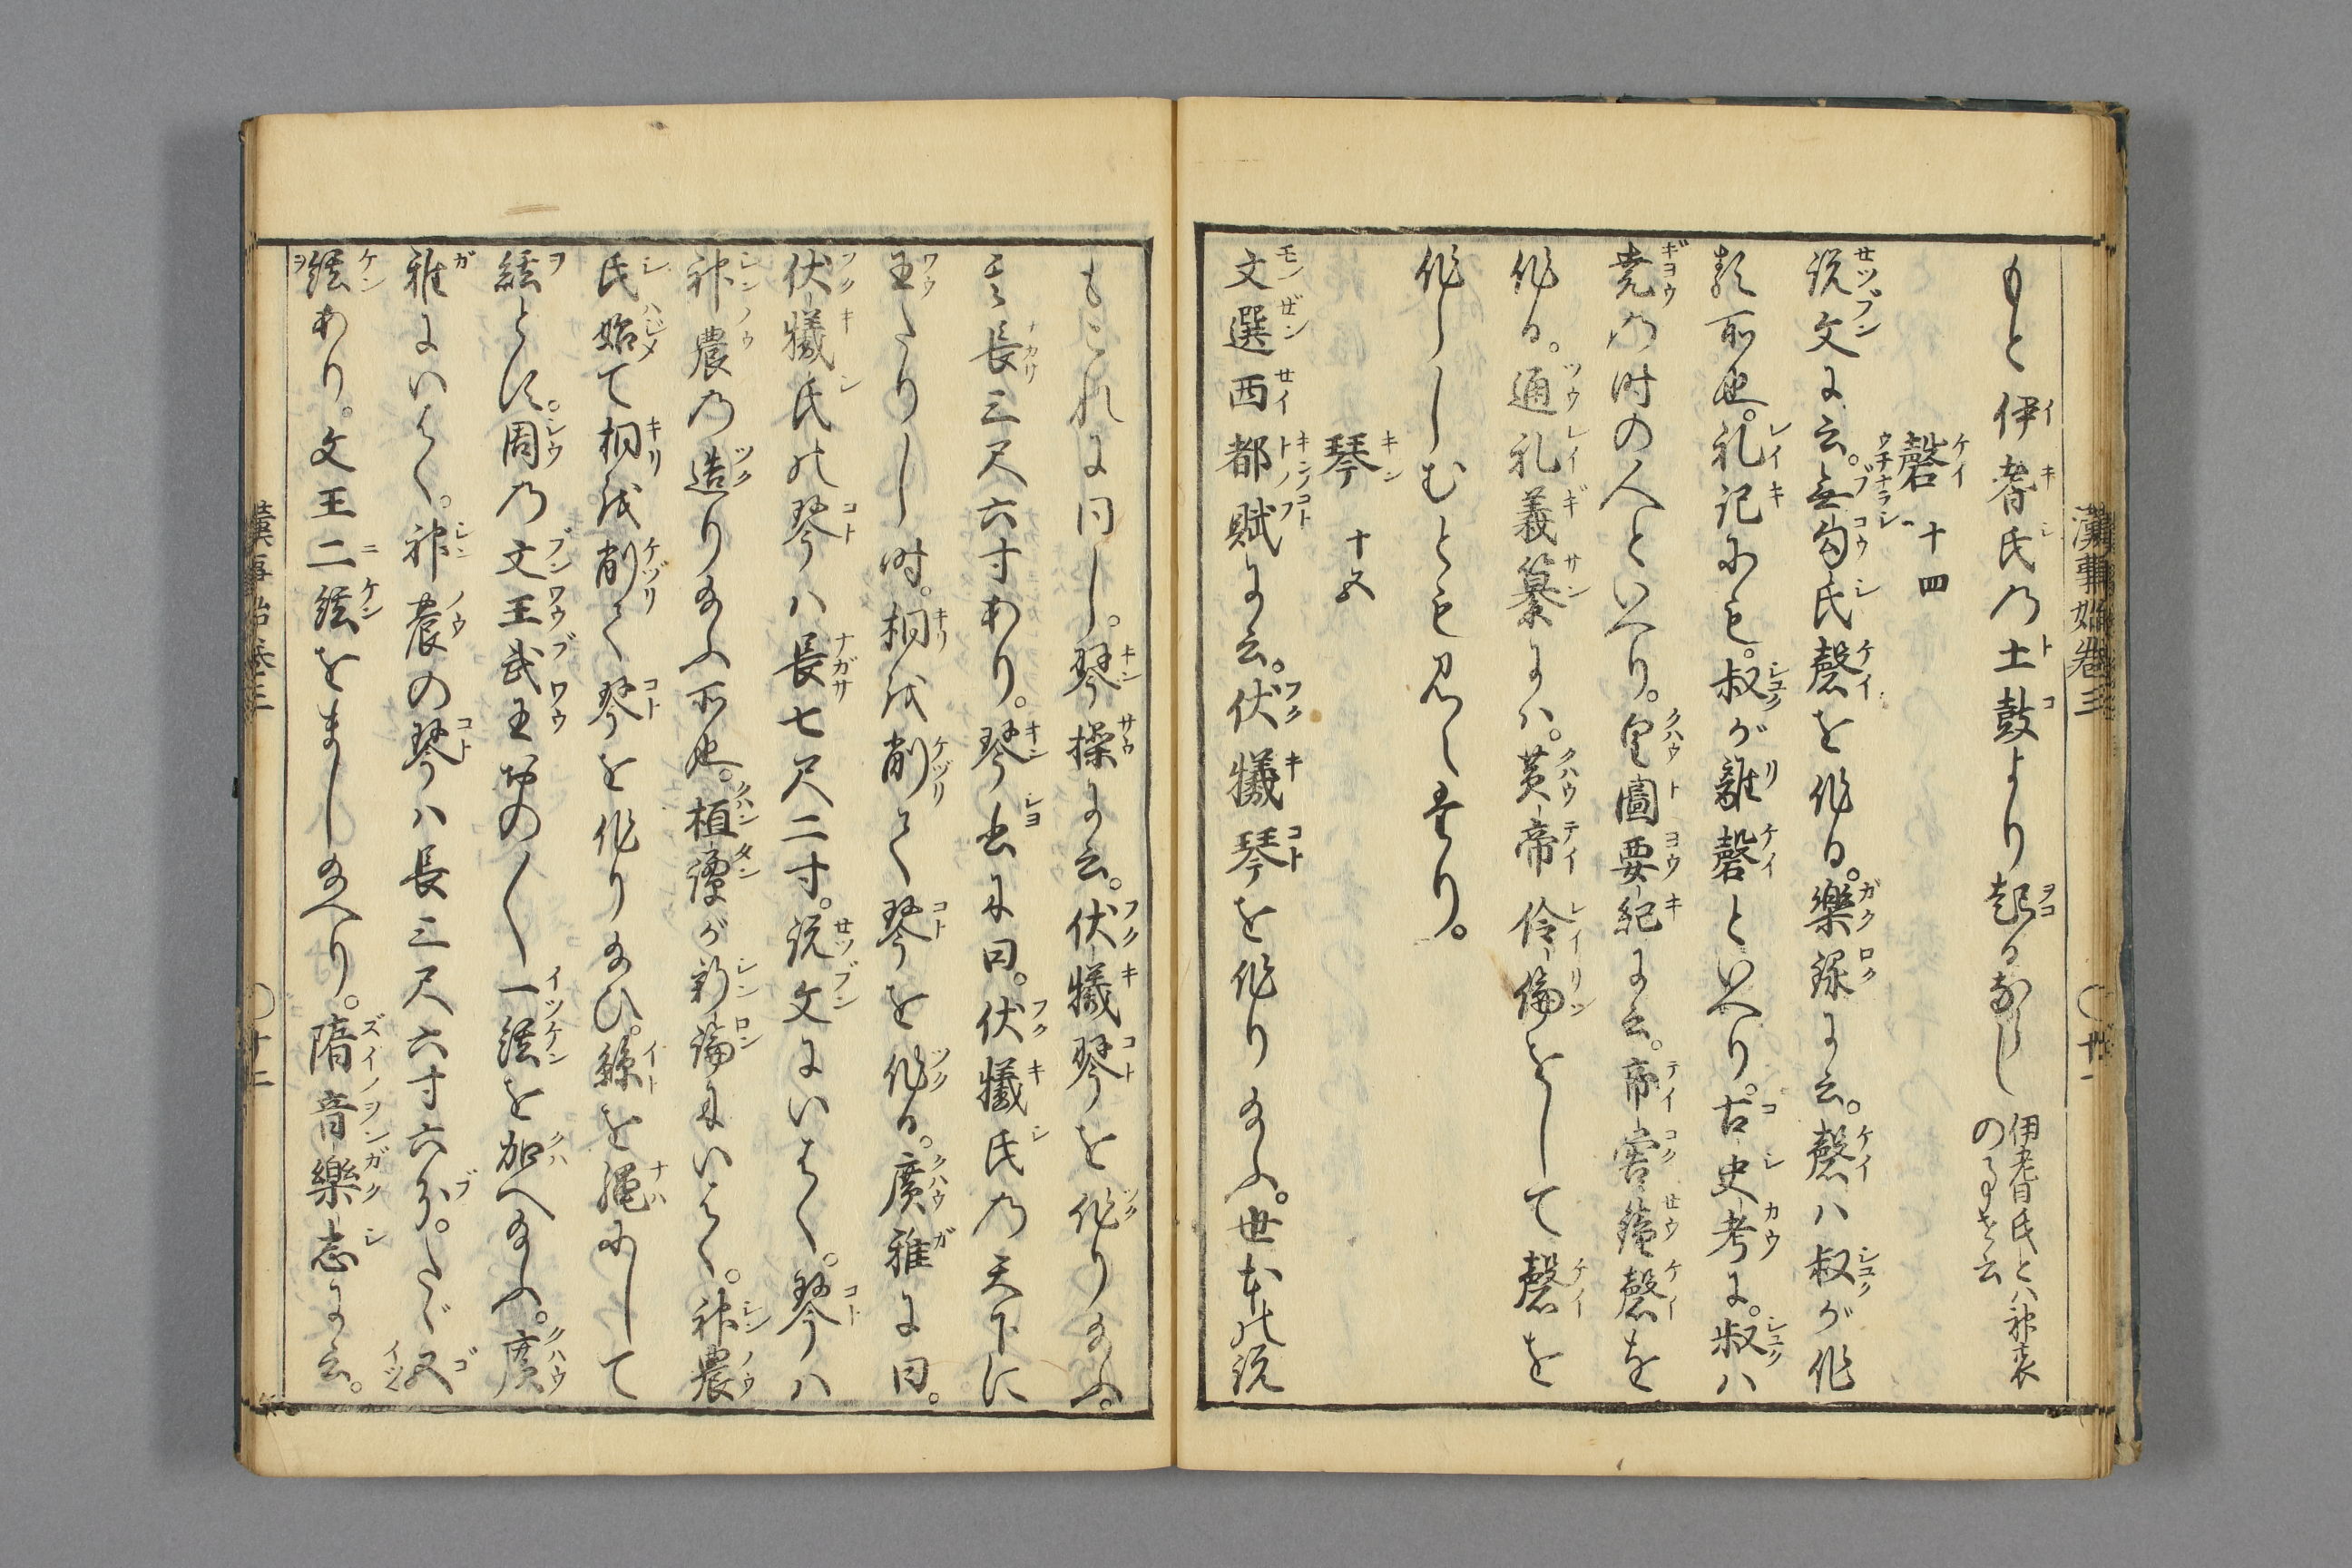 漢事始巻三 ○廿一
もと伊耆氏乃土鼓より起るなるべし 伊耆氏とハ神農のことを云
磬 十四
説文に云。無勾氏磬を作る。樂録に云。磬ハ叔が作
る所也。礼記にも。叔が離磬といへり。古史考に。叔ハ
尭乃时の人といへり。皇圖要紀に云。帝嚳鐘磬を
作る。通礼義纂にハ。黄帝伶倫をして磬を
作らしむとも見えたり。
琴 十五
文選西都賦に云。伏犠琴を作り給ふ。世本の説
もこれに同し。琴操に云。伏犠琴を作り給ふ。
其長三尺六寸あり。琴書に曰。伏犠氏乃天下に
王たりし时。桐を削て琴を作る。廣雅に曰。
伏犠氏の琴ハ長七尺二寸。説文にいはく。琴ハ
神農乃造り給ふ所也。桓譚が新論にいはく。神農
氏始て桐を削て琴を作り給ひ。絲を縄にして
絃とす。周乃文王武王おの〱一絃を加へ給ふ。廣
雅にいはく。神農の琴ハ長三尺六寸六分。たゞ五
絃あり。文王二絃をまし給へり。隋音樂志に云。
漢事始巻三 ○廿二